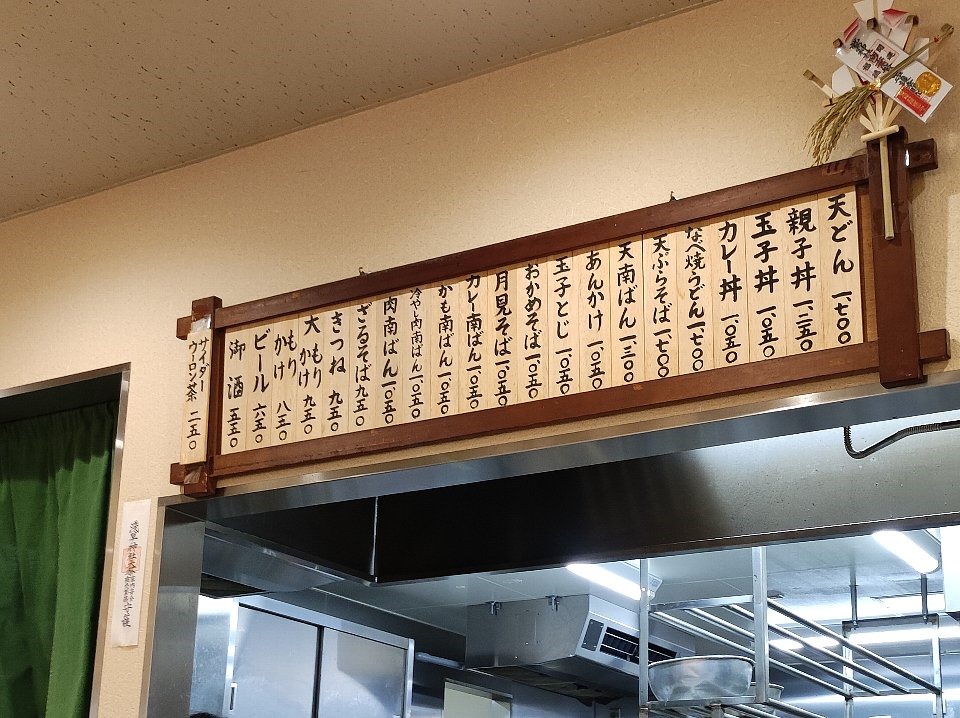 天どん 一、七〇〇
親子丼 一、二五〇
玉子丼 一、〇五〇
カレー丼 一、〇五〇
なべ焼うどん 一、七〇〇
天ぷらそば 一、七〇〇
天南ばん 一、三〇〇
あんかけ 一、〇五〇
玉子とじ 一、〇五〇
おかめそば 一、〇五〇
月見そば 一、〇五〇
カレー南ばん 一、〇五〇
かも南ばん 一、〇五〇
冷やし肉南ばん 一、〇五〇
肉南ばん 一、〇五〇
ざるそば 九五〇
きつね 九五〇
大もりかけ 九五〇
もりかけ 八五〇
ビール 六五〇
御酒 五五〇
サイダー
ウーロン茶 二五〇
浅草神社